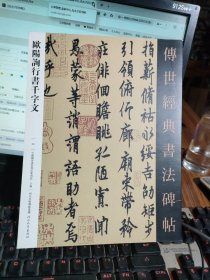 傳世經典書法碑帖
指薪脩祜永綏吉劭矩步
引領俯仰廊廟束帶矜
莊徘徊瞻眺孤陋寡聞
愚蒙等誚謂語助者焉
哉乎也
歐陽詢行書千字文